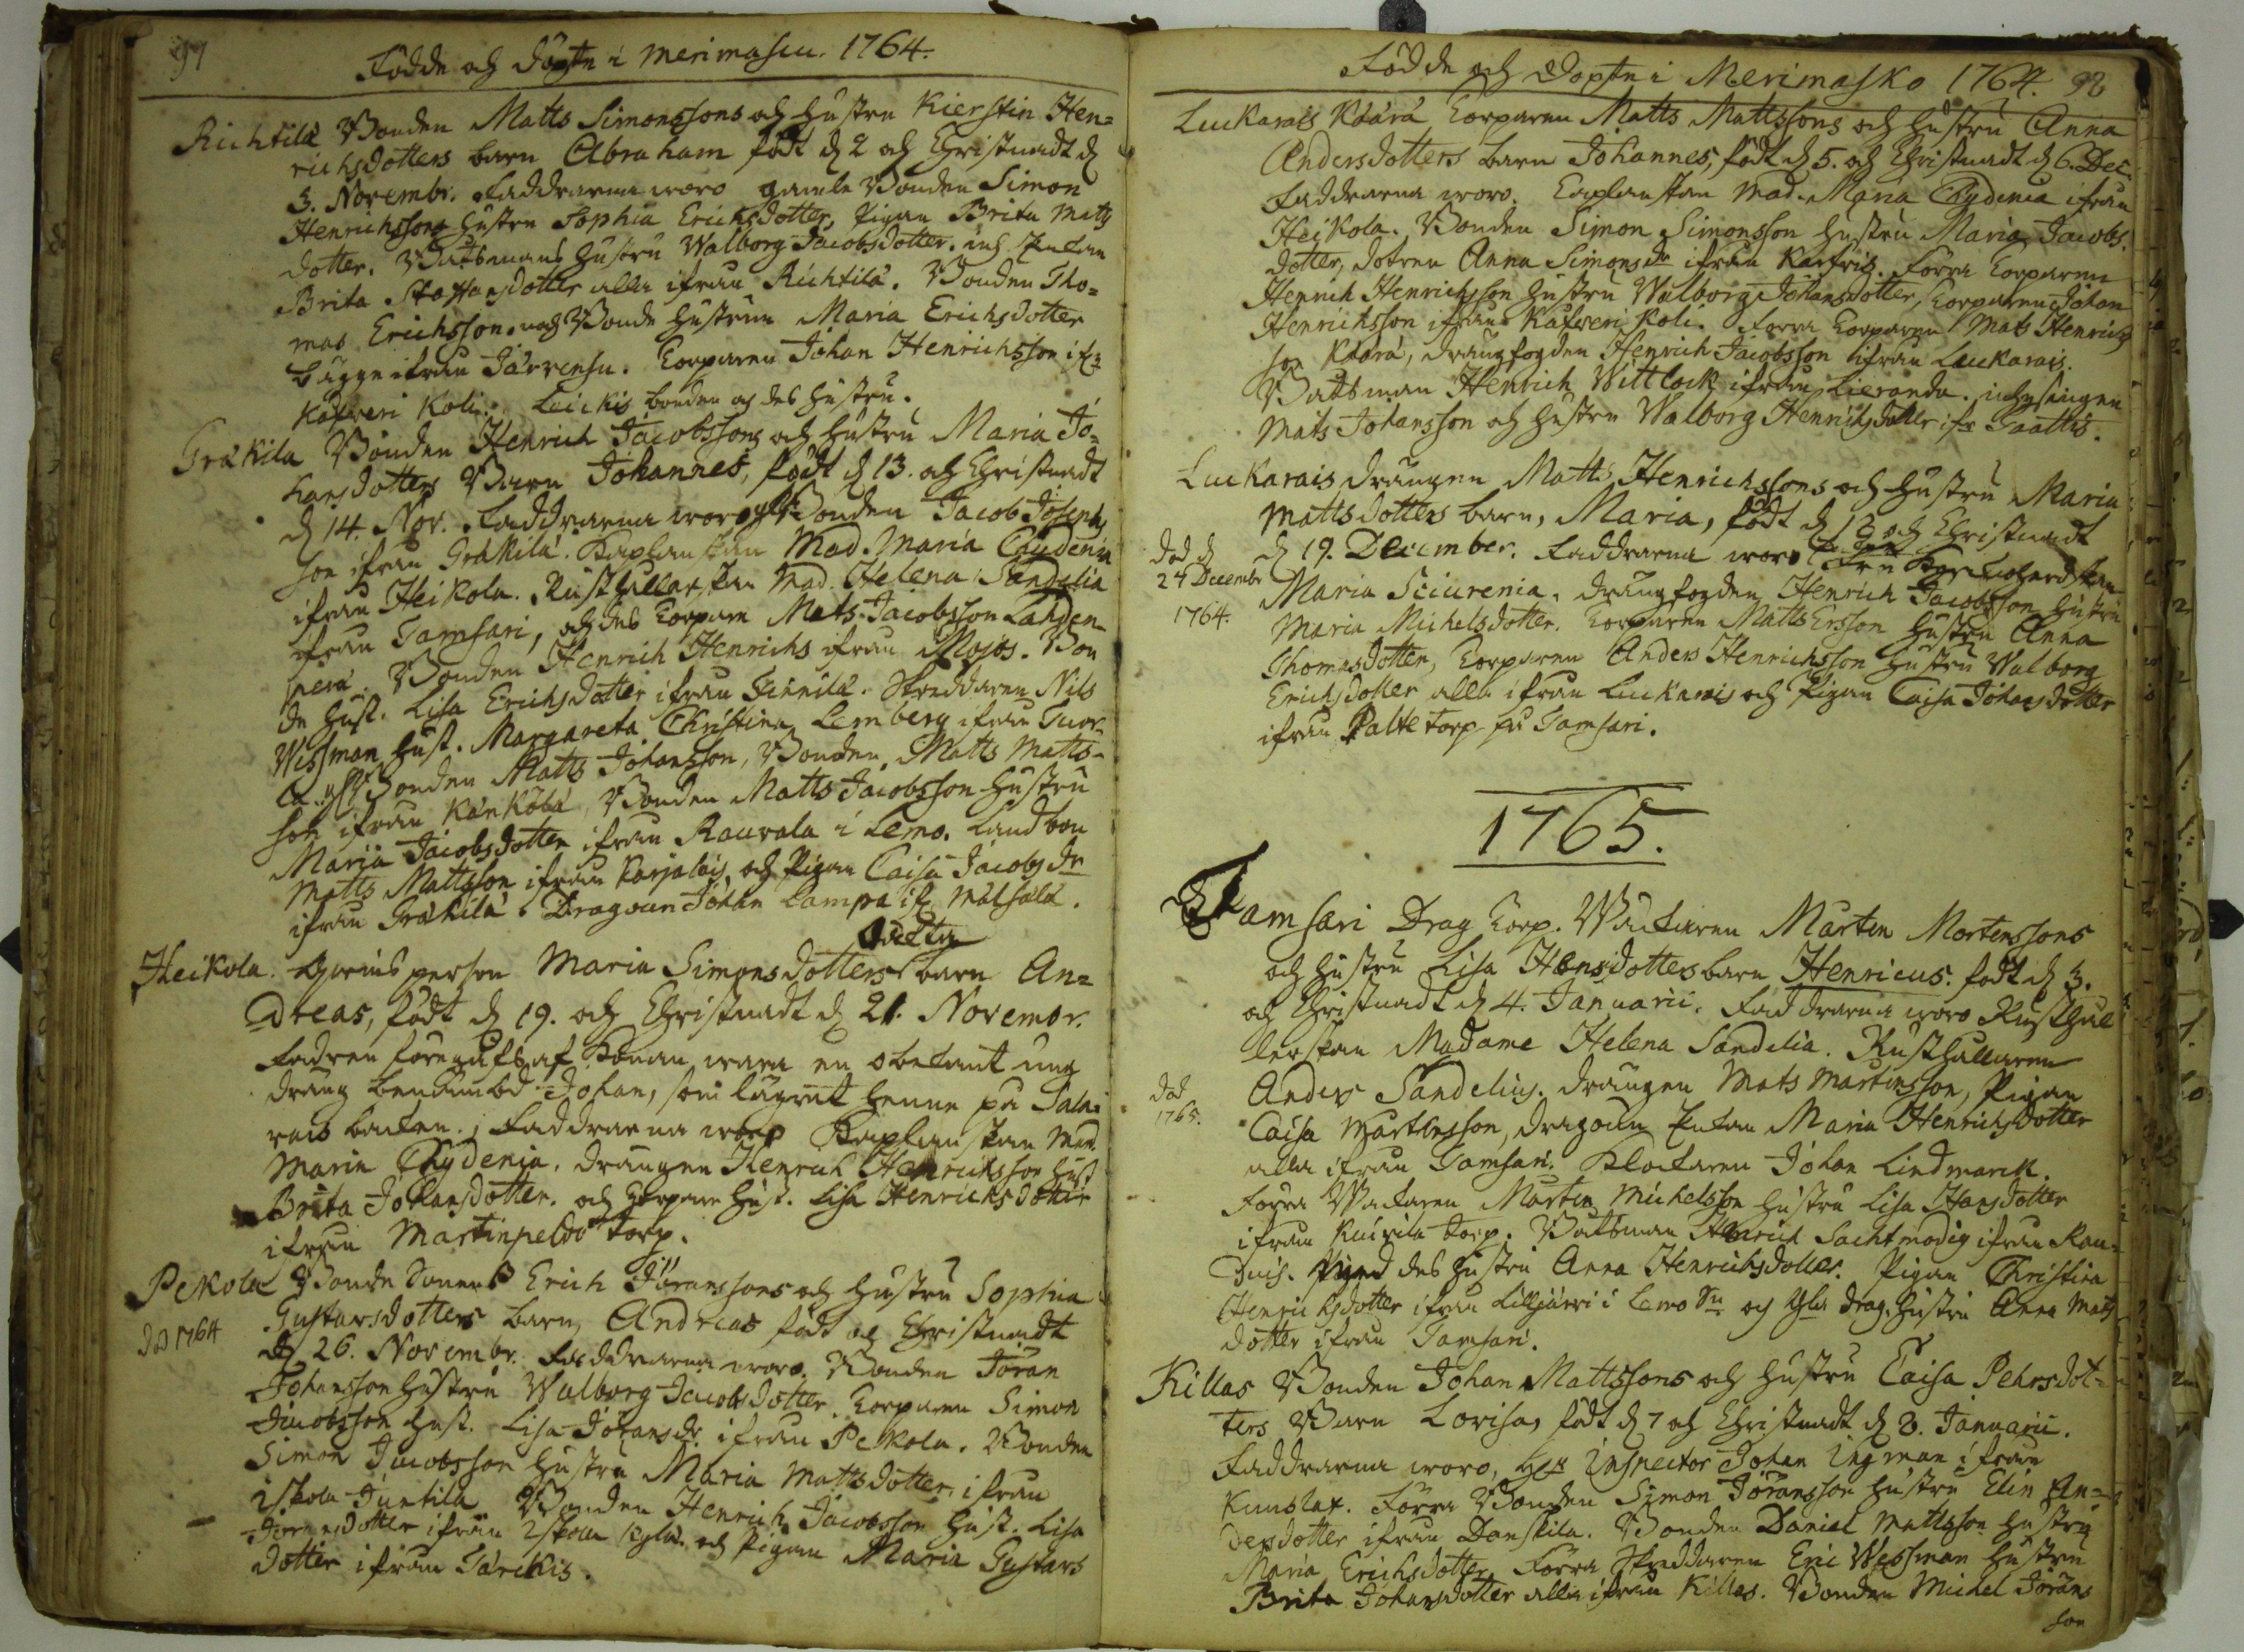 97
Födde och döpte i Merimasku. 1764.
Richtilä Bonden Matts Simonssons och hustru Kierstin Hen=
richsdotters barn Abraham födt d 2 och Christnadt d
3. Novembr. Faddrarna woro gamle Bonden Simon
Henrichssons hustru Sophia Erichsdotter, Pigan Brita Matts
dotter. Båtsmans hustru Walborg Jacobsdotter. och Enkan
Brita Staffansdotter alla ifrån Richtilä. Bonden Tho=
mas Erichsson. och Bonde hustrun Maria Erichsdotter
bägge ifrån Järvensu. Torparen Johan Henrichsson if:
Kafweri Koli. Leickis bonden och des hustru.
Gräkila Bonden Henrich Jacobssons och hustru Maria Jo=
hansdotters Barn Johannes, födt d 13. och Christnadt
d 14. Nov. Faddrarna woro Bonden Jacob Josephs
son ifrån Gräkilä. Kaplanskan Mad. Maria Chydenia
ifrån Heikola. Rusthållarskan Mad. Helena Sandelia
ifrån Tamsari, och des Torpare Mats Jacobsson Lahden
perä. Bonden Henrich Henrichs ifrån Mojos. Bon
de hust. Lisa Erichsdotter ifrån Finnilä. Skreddaren Nils
Wessman hust. Margareta Christina Lemberg ifrån Tuor
la. Bonden Matts Johansson, Bonden Matts Matts-
son ifrån Känköla, Bonden Matts Jacobsson hustru
Maria Jacobsdotter ifrån Rauvola i Lemo. Landbon
Matts Mattsson ifrån Karjalais, och Pigan Caisa Jacobs Dr
ifrån Gräkilä. Dragoun Johan Lampa if. Matsala.
oäkta
Heikola. Qwinsperson Maria Simonsdotters barn An=
dreas, födt d 19. och Christnadt d 21. Novembr.
Fadren föregifs af Konan wara en obekant ung
dräng benämbd Johan, som lägrat henne på Sala=
rais backen. Faddrarna woro Kaplanskan Mad.
Maria Chydenia. Drängen Henrich Henrichsson hust
Brita Johansdotter. och Torpare hust. Lisa Henrichsdotter
ifrån Martinpeldo Torp.
Pekola Bonde Sonens Erich Jöranssons och hustru Sophia
död 1764
Gustavsdotters barn, Andreas födt och Christnadt
d 26. Novembr. Faddrarna woro. Bonden Jöran
Johansson hustru Walborg Jacobsdotter. Torparen Simon
Jacobsson hust. Lisa Johansdr. ifrån Pekola. Bonden
Simon Jacobsson hustru Maria Mattsdotter, ifrån
Iskola Juntila Bonden Henrich Jacobsson hust. Lisa
Jöransdotter ifrån Iskola Kylä. och Pigan Maria Gustavs
dotter ifrån Tärckis.
Födde och Döpte i Merimasko 1764. 98
Luckarais Kåårå Torparen Matts Mattssons och hustru Anna
Andersdotters barn Johannes, födt d 5. och Christnadt d 6. Dec.
Faddrarna woro. Caplanskan Mad. Maria Chydenia ifrån
Heikola. Bonden Simon Simonsson hustru Maria Jacobs.
dotter, dotren Anna Simonsdr ifrån Karfris. Förra Torparen
Henrich Henrichsson hustru Walborg Johansdotter, Torparen Johan
Henrichsson ifrån Kafweri Koli. Förra Torparen Mats Henrichs
son Kåårå, drängfogden Henrich Jacobsson ifrån Luckarais.
Båtsman Henrich Wittlock ifrån Lieranda. inhysingen
Mats Johansson och hustru Walborg Henrichsdotter ifr Taattis.
Luckarais drängen Matts Henrichssons och hustru Maria
Mattsdotters barn, Maria, födt d 18 och Christnadt
död d
24 Decembr
1764.
d 19. December. Faddrarna woro
Maria Sciurenia. Drängfogden Henrich Jacobsson hustru
Maria Michelsdotter. Torparen Matts Ersson hustru Anna
Thomasdotter, Torparen Anders Henrichsson hustru Walborg
Erichsdotter alla ifrån Luckarais och Pigan Caisa Johansdotter
ifrån Palte torp på Tamsari.
1765.
Tamsari Drag Torp. Wäktaren Mårten Mortenssons
och hustru Lisa Hansdotters barn Henricus. födt d 3.
och Christnadt d 4. Januarii. Faddrarna woro Rusthål
lerskan Madame Helena Sandelia. Rusthållaren
död
1765.
Anders Sandelius. Drängen Mats Martinsson, Pigan
Caisa Martinsson, dragoun Enkan Maria Henrichsdotter
alla ifrån Tamsari. Klockaren Johan Lindmarck.
Förra Wäktaren Mårten Michelsson hustru Lisa Hansdotter
ifrån Kuivila Torp. Båtsman Henrich Sachtmodig ifrån Rau=
duis. med des hustru Anna Henrichsdotter. Pigan Christina
Henrichsdotter ifrån Lilljärvi i Lemo Sn och drag. hustru Anna Mats
dotter ifrån Tamsari.
Killas Bonden Johan Mattssons och hustru Caisa Pehrsdot=
ters Barn Lovisa, födt d 7 och Christnadt d 8. Januarii.
Faddrarna woro, hr Inspector Johan Ingman ifrån
Kunslax. Förra Bonden Simon Jöransson hustru Elin An=
dersdotter ifrån Danskila. Bonden Daniel Mattsson hustru
Maria Erichsdotter. Förra Skreddaren Eric Wessman hustru
Brita Johansdotter alla ifrån Killas. Bonden Michel Jörans
son